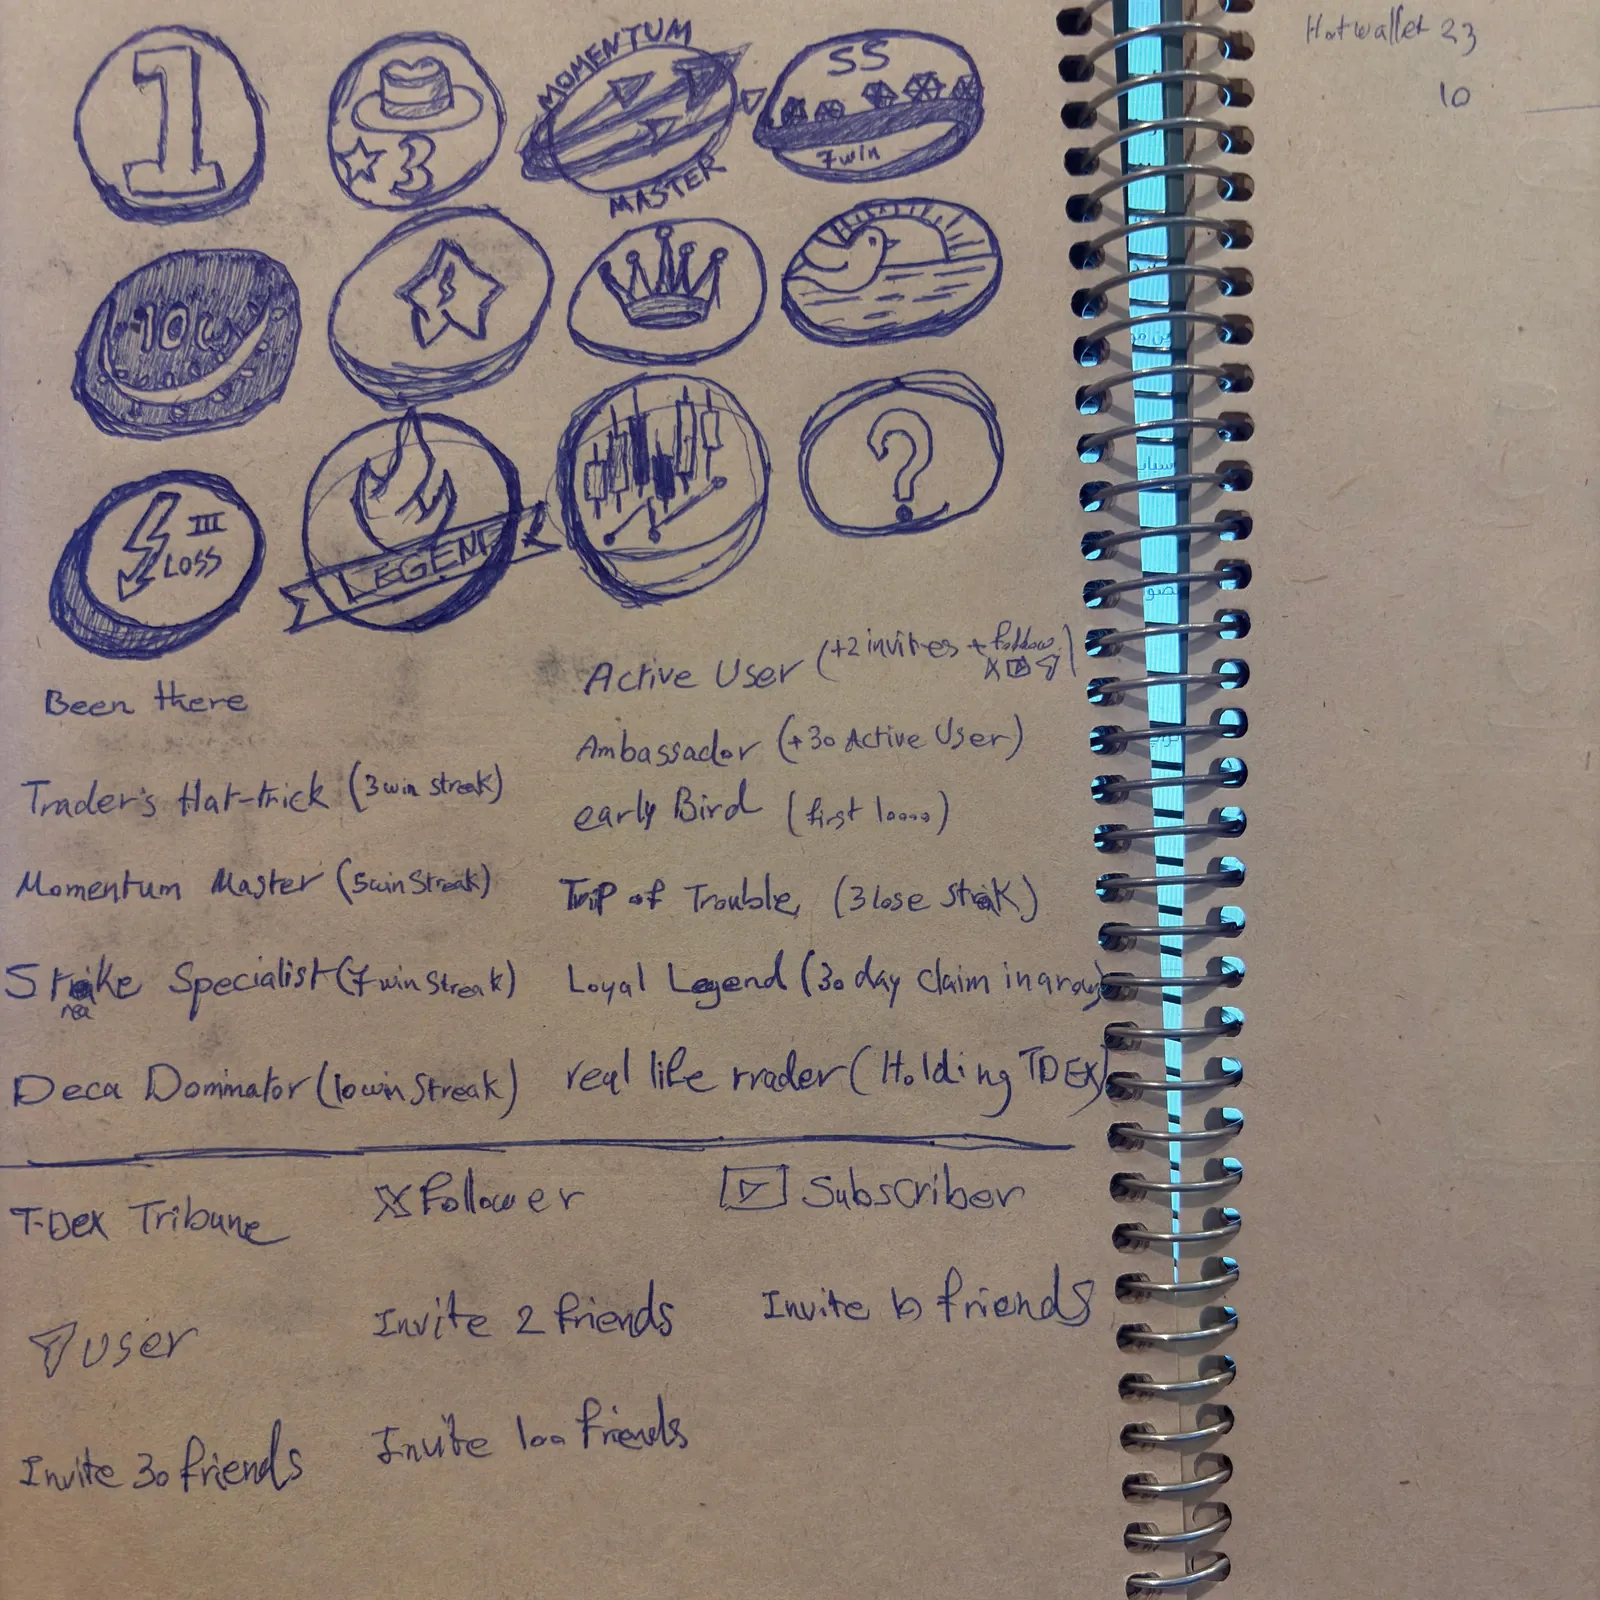 1
3
MOMENTUM
MASTER
SS
7win
10
III
LOSS
LEGEND
?
Been there
Trader's Hat-trick (3win streak)
Momentum Master (5win Streak)
Streake Specialist (7win Streak)
rea
Deca Dominator (10win Streak)
Active User (+2 invites + follow
X
Ambassador (+30 Active User)
early Bird (first 10000)
Trip of Trouble (3 lose streak)
Loyal Legend (30 day claim in a row)
real life trader (Holding TDEX)
T-Dex Tribune
X Follower
Subscriber
user
Invite 2 friends
Invite 10 friends
Invite 30 friends
Invite 100 friends
Hotwallet 23
10